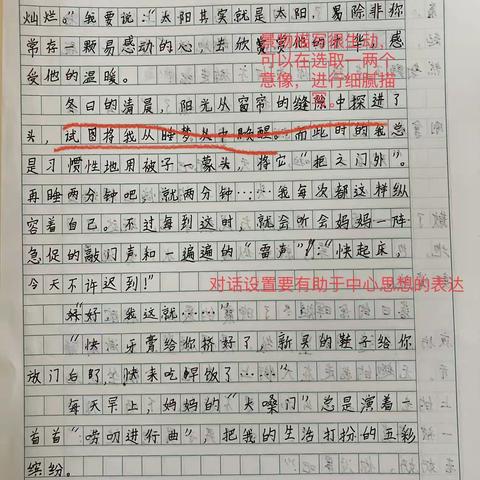 灿烂。"我要说："太阳其实就是太阳，易除非你
常存一颗易感动的心，去欣赏受他的光华，感
受他的温暖。
景物描写很生动，
可以在选取一两个
意像，进行细腻描
写。
冬日的清晨，阳光从窗帘的缝隙中探进了
头，试图将我从睡梦从中唤醒。而此时的我总
是习惯性地用被子一蒙头，将它"拒之门外"。
再睡两分钟吧，就两分钟……我每次都这样纵
容着自己。不过每到这时，就会听会妈妈一阵
急促的敲门声和一遍遍的"雷声"："快起床，
今天不许迟到！"
对话设置要有助于中心思想的表达
"好，我这就……"
"快，牙膏给你挤好了，新买的鞋子给你
放门后了，快来吃早饭了……"
每天早上，妈妈的"大嗓门"总是演着一
首首"唠叨进行曲"，把我的生活打扮的五彩
缤纷。